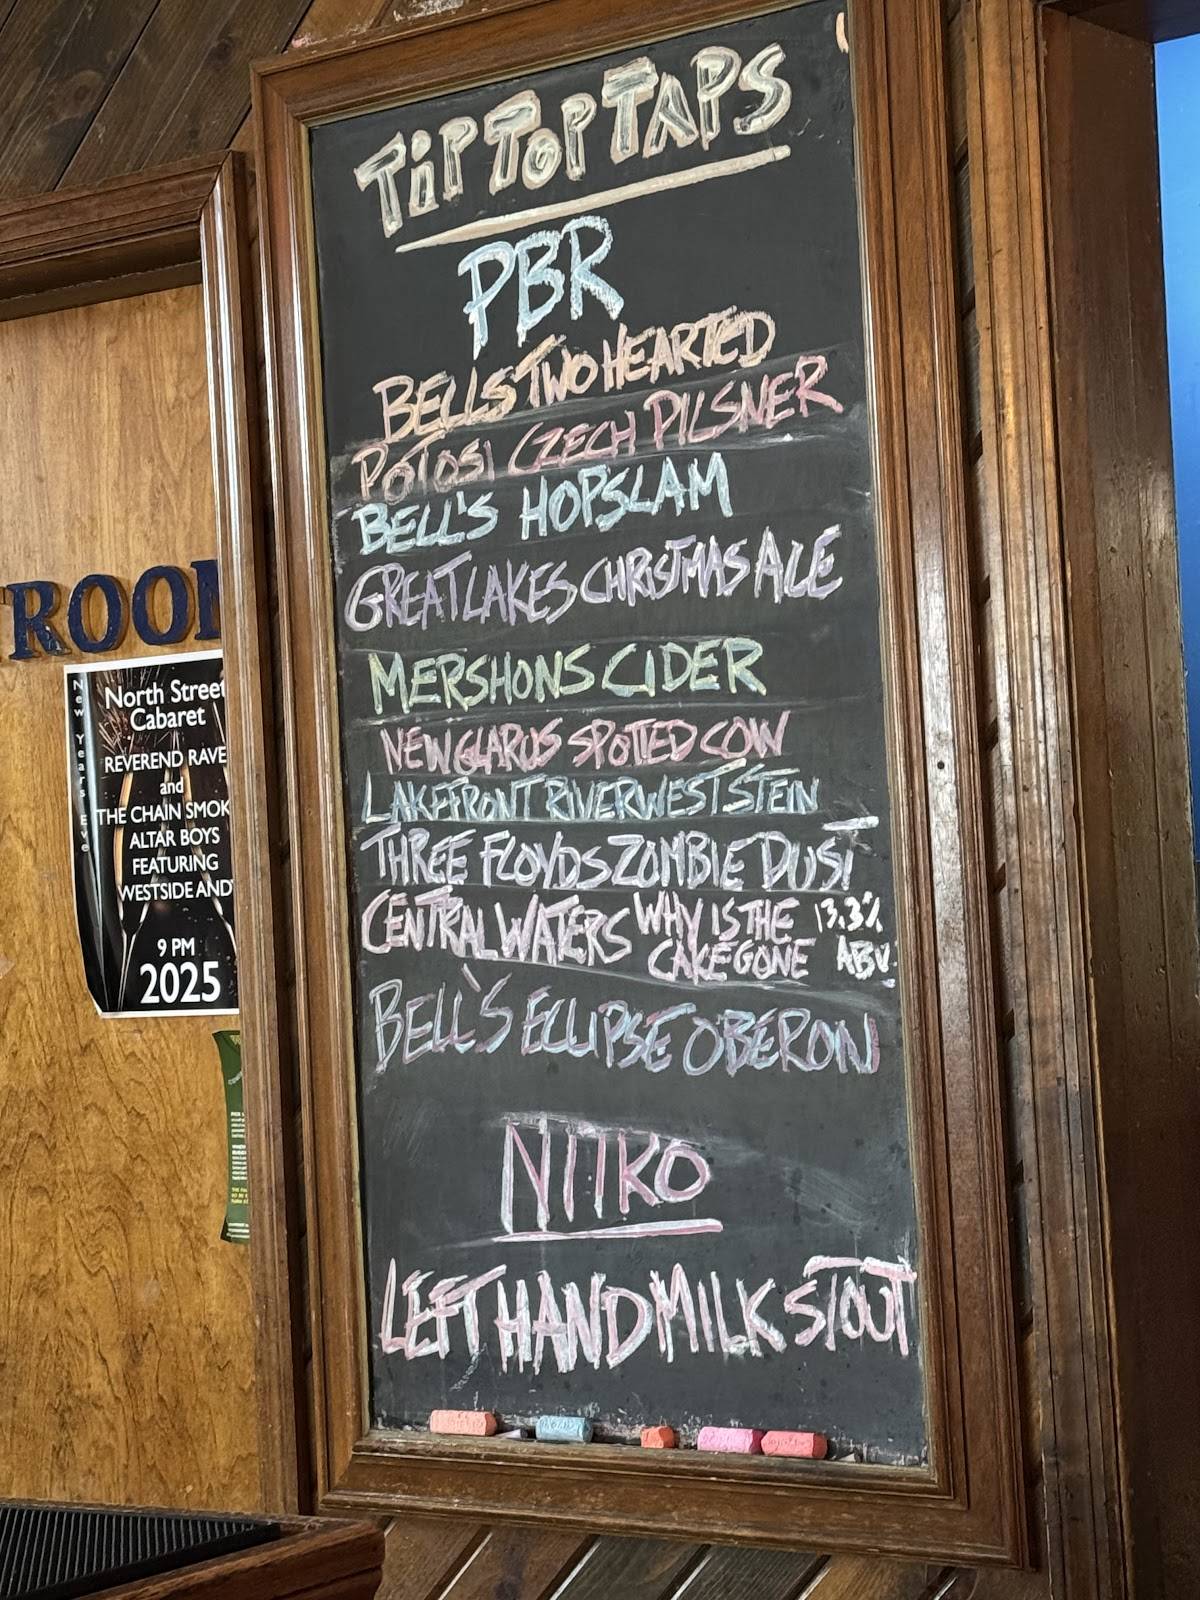 TiP TOP TAPS
PBR
BELLS TWO HEARTED
POTOSI CZECH PILSNER
BELL'S HOPSLAM
GREAT LAKES CHRISTMAS ALE
MERSHONS CIDER
NEW GLARUS SPOTTED COW
LAKEFRONT RIVERWEST STEIN
THREE FLOYDS ZOMBIE DUST
CENTRAL WATERS WHY IS THE 13.3%
CAKE GONE ABV.
BELL'S ECLIPSE OBERON
NITRO
LEFT HAND MILK STOUT
ROOM
New Years Eve
North Street
Cabaret
REVEREND RAVE
and
THE CHAIN SMOK
ALTAR BOYS
FEATURING
WESTSIDE AND
9 PM
2025